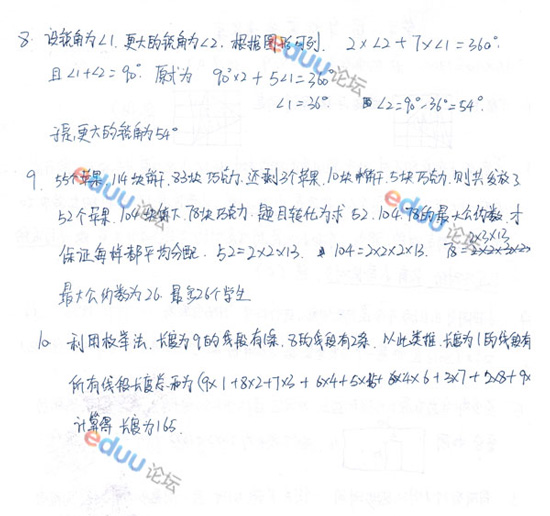 8. 设锐角为∠1. 更大的锐角为∠2. 根据图形可列. 2×∠2+7×∠1=360°.
且∠1+∠2=90°. 原式为 90°×2+5∠1=360°
∠1=36°. ∠2=90°-36°=54°.
于是,更大的锐角为54°
9. 55个苹果, 114块饼干, 83块巧克力. 还剩3个苹果, 10块饼干, 5块巧克力. 则共分放了
52个苹果. 104块饼干. 78块巧克力. 题目转化为求52, 104, 78的最大公约数, 才
保证每样都平均分配. 52=2×2×13. 104=2×2×2×13. 78=
最大公约数为26. 最多26个学生
10. 利用枚举法, 长度为9的线段有1条. 8的线段有2条. 以此类推 长度为1的线段有
所有线段长度总和为(9×1+8×2+7×3+6×4+5×5+4×6+3×7+2×8+9×
计算得 长度为165.
eduu论坛
eduu论坛
eduu论坛